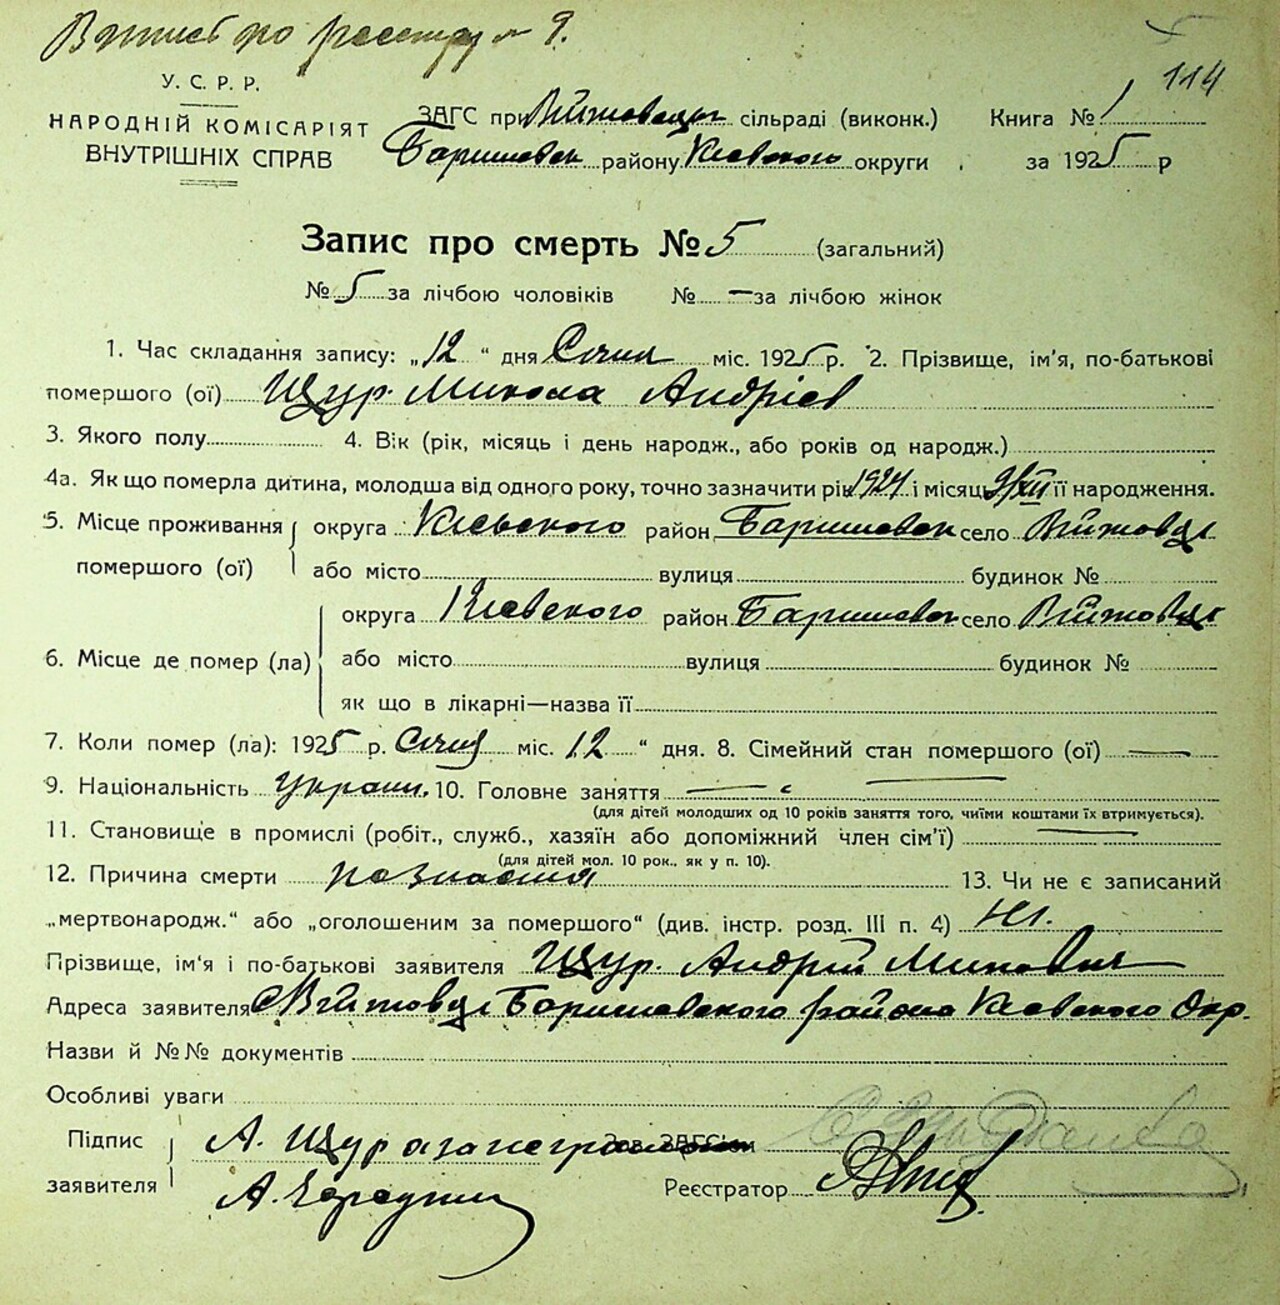 по реестру № 9.
114
У. С. Р. Р.
НАРОДНІЙ КОМІСАРІЯТ
ВНУТРІШНІХ СПРАВ
ЗАГС при Війтовцы сільраді (виконк.) Книга № 1
Баришевск району Киевского округи за 1925 р
Запис про смерть № 5 (загальний)
№ 5 за лічбою чоловіків № — за лічбою жінок
1. Час складання запису: „12 “ дня Січня міс. 1925 р. 2. Прізвище, ім’я, по-батькові
помершого (ої) Щур Микола Андріев
3. Якого полу 4. Вік (рік, місяць і день народж., або років од народж.)
4а. Як що померла дитина, молодша від одного року, точно зазначити рік 1924 і місяц 9/XII її народження.
5. Місце проживання помершого (ої) округа Киевського район Баришевск село Війтовці
або місто вулиця будинок №
6. Місце де помер (ла) округа Киевского район Баришевск село Війтовці
або місто вулиця будинок №
як що в лікарні—назва її
7. Коли помер (ла): 1925 р. Січня міс. 12 “ дня. 8. Сімейний стан помершого (ої) —
9. Національність Украин. 10. Головне заняття —
(для дітей молодших од 10 років заняття того, чиїми коштами їх втримується).
11. Становище в промислі (робіт., служб., хазяїн або допоміжний член сім’ї) —
(для дітей мол. 10 рок., як у п. 10).
12. Причина смерти 13. Чи не є записаний
„мертвонародж.“ або „оголошеним за помершого“ (див. інстр. розд. III п. 4) Ні.
Прізвище, ім’я і по-батькові заявителя Щур Андрій
Адреса заявителя с Війтовці Баришевского района Киевского Окр.
Назви й №№ документів
Особливі уваги
Підпис заявителя А. Щур а за неграмот Зав. ЗАГС’ом
А. Реєстратор